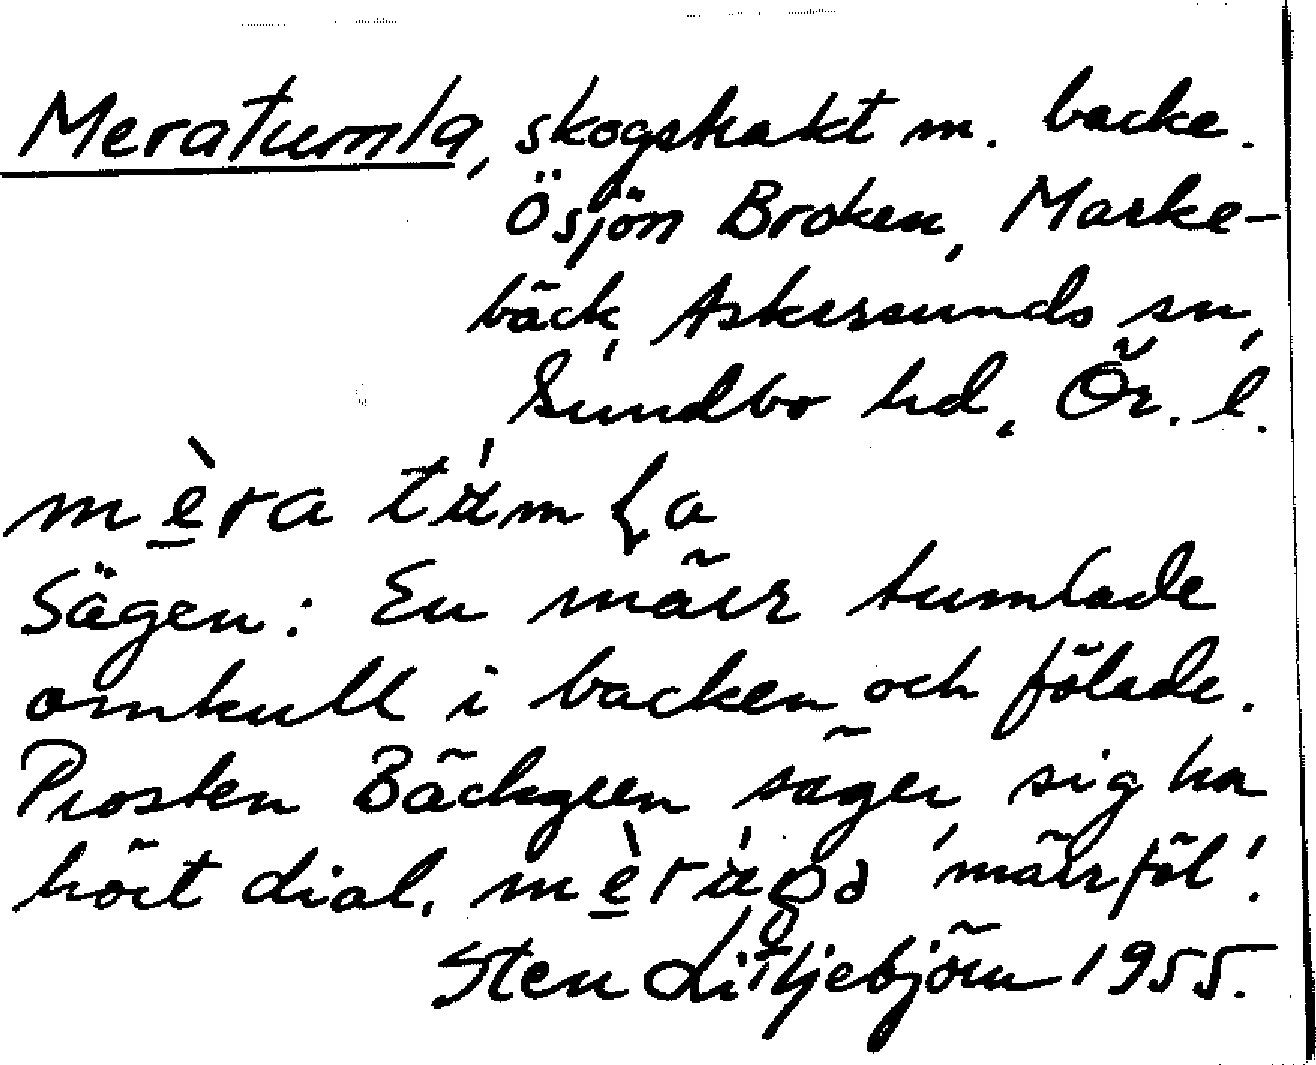 Meratumla, skogstrakt m. backe.
Ö sjön Broken, Marke-
bäck, Askersunds sn,
Sundbo hd, Ör. l.
Sägen: En märr tumlade
omkull i backen och fölade.
Prosten Bäckgren säger sig ha
hört dial. 'märrföl'.
Sten Liljebjörn 1955.